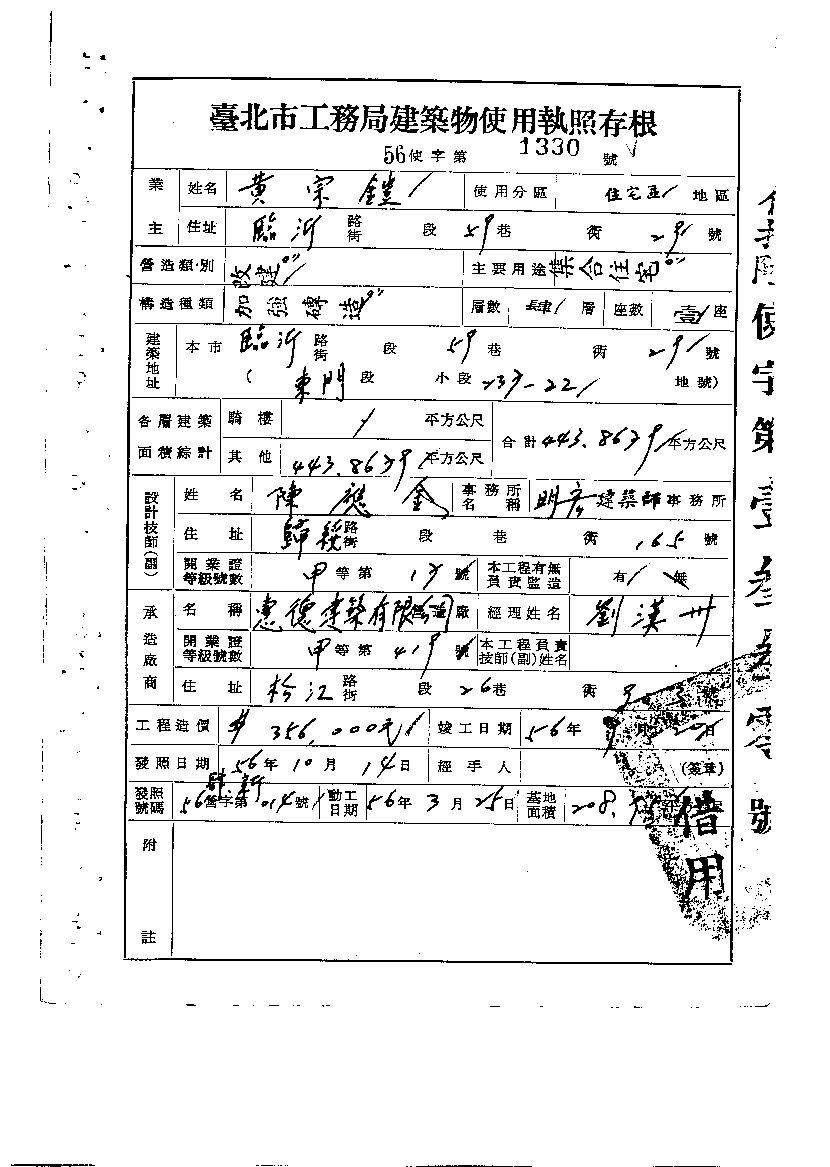 臺北市工務局建築物使用執照存根
56使字第 1330 號
業主 姓名 黃宗鎧 使用分區 住宅區 地區
住址 臨沂 路街 段 59 巷 街 29 號
營造類別 改建 主要用途 集合住宅
構造種類 加強磚造 層數 肆 層 座數 壹 座
建築地址 本市 臨沂 路街 段 59 巷 街 29 號
( 東門 段 小段 239-22 地號)
各層建築面積綜計 騎樓 / 平方公尺 合計 443.8639 平方公尺
其他 443.8639 平方公尺
設計技師(副) 姓名 陳 事務所名稱 明彥建築師事務所
住址 歸綏 路街 段 巷 街 165 號
開業證等級號數 甲等第 號 本工程有無負責監造 有 無
承造廠商 名稱 惠德建築有限公司 廠 經理姓名 劉漢卅
開業證等級號數 甲等第 419 號 本工程負責技師(副)姓名
住址 松江 路街 段 26 巷 街 9 號
工程造價 $356,000元 竣工日期 56年 9月 20日
發照日期 56年 10月 14日 經手人 (簽章)
發照號碼 56營字第 014 號 動工日期 56年 3月 25日 基地面積 208.
附註
借用
使字第壹叁叁零號